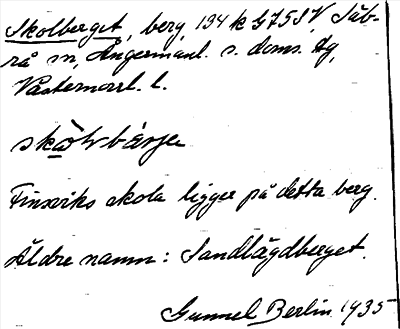 Skolberget, berg, 134 k G 7 S S V, Säb-
rå sn, Ångermanl. s. doms. tg,
Västernorrl. l.
Finsviks skola ligger på detta berg.
Äldre namn: Sandlägdberget.
Gunnel Berlin 1935